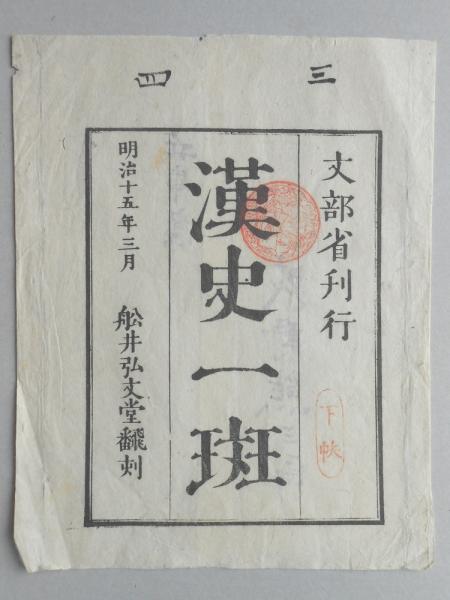 三
四
文部省刊行
下帙
漢史一斑
明治十五年三月
舩井弘文堂飜刻